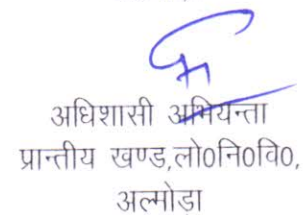 अधिशासी अभियन्ता
प्रान्तीय खण्ड,लो0नि0वि0,
अल्मोडा